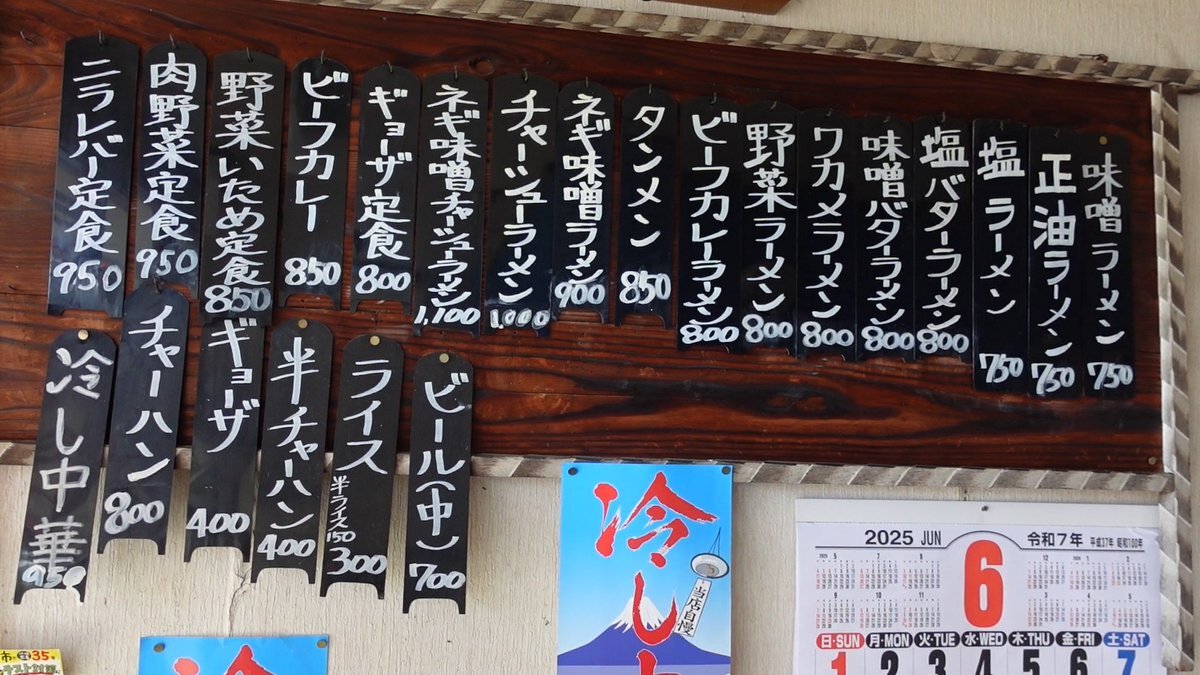 味噌ラーメン 750
正油ラーメン 750
塩ラーメン 750
塩バターラーメン 800
味噌バターラーメン 800
ワカメラーメン 800
野菜ラーメン 800
ビーフカレーラーメン 800
タンメン 850
ネギ味噌ラーメン 900
チャーシューラーメン 1,000
ネギ味噌チャーシューラーメン 1,100
ギョーザ定食 800
ビーフカレー 850
野菜いため定食 850
肉野菜定食 950
ニラレバー定食 950
ビール(中) 700
ライス 300
半ライス 150
半チャーハン 400
ギョーザ 400
チャーハン 800
冷し中華 950
冷し
当店自慢
冷
2025 JUN 6 令和7年 平成37年 昭和100年
日・SUN 月・MON 火・TUE 水・WED 木・THU 金・FRI 土・SAT
1 2 3 4 5 6 7